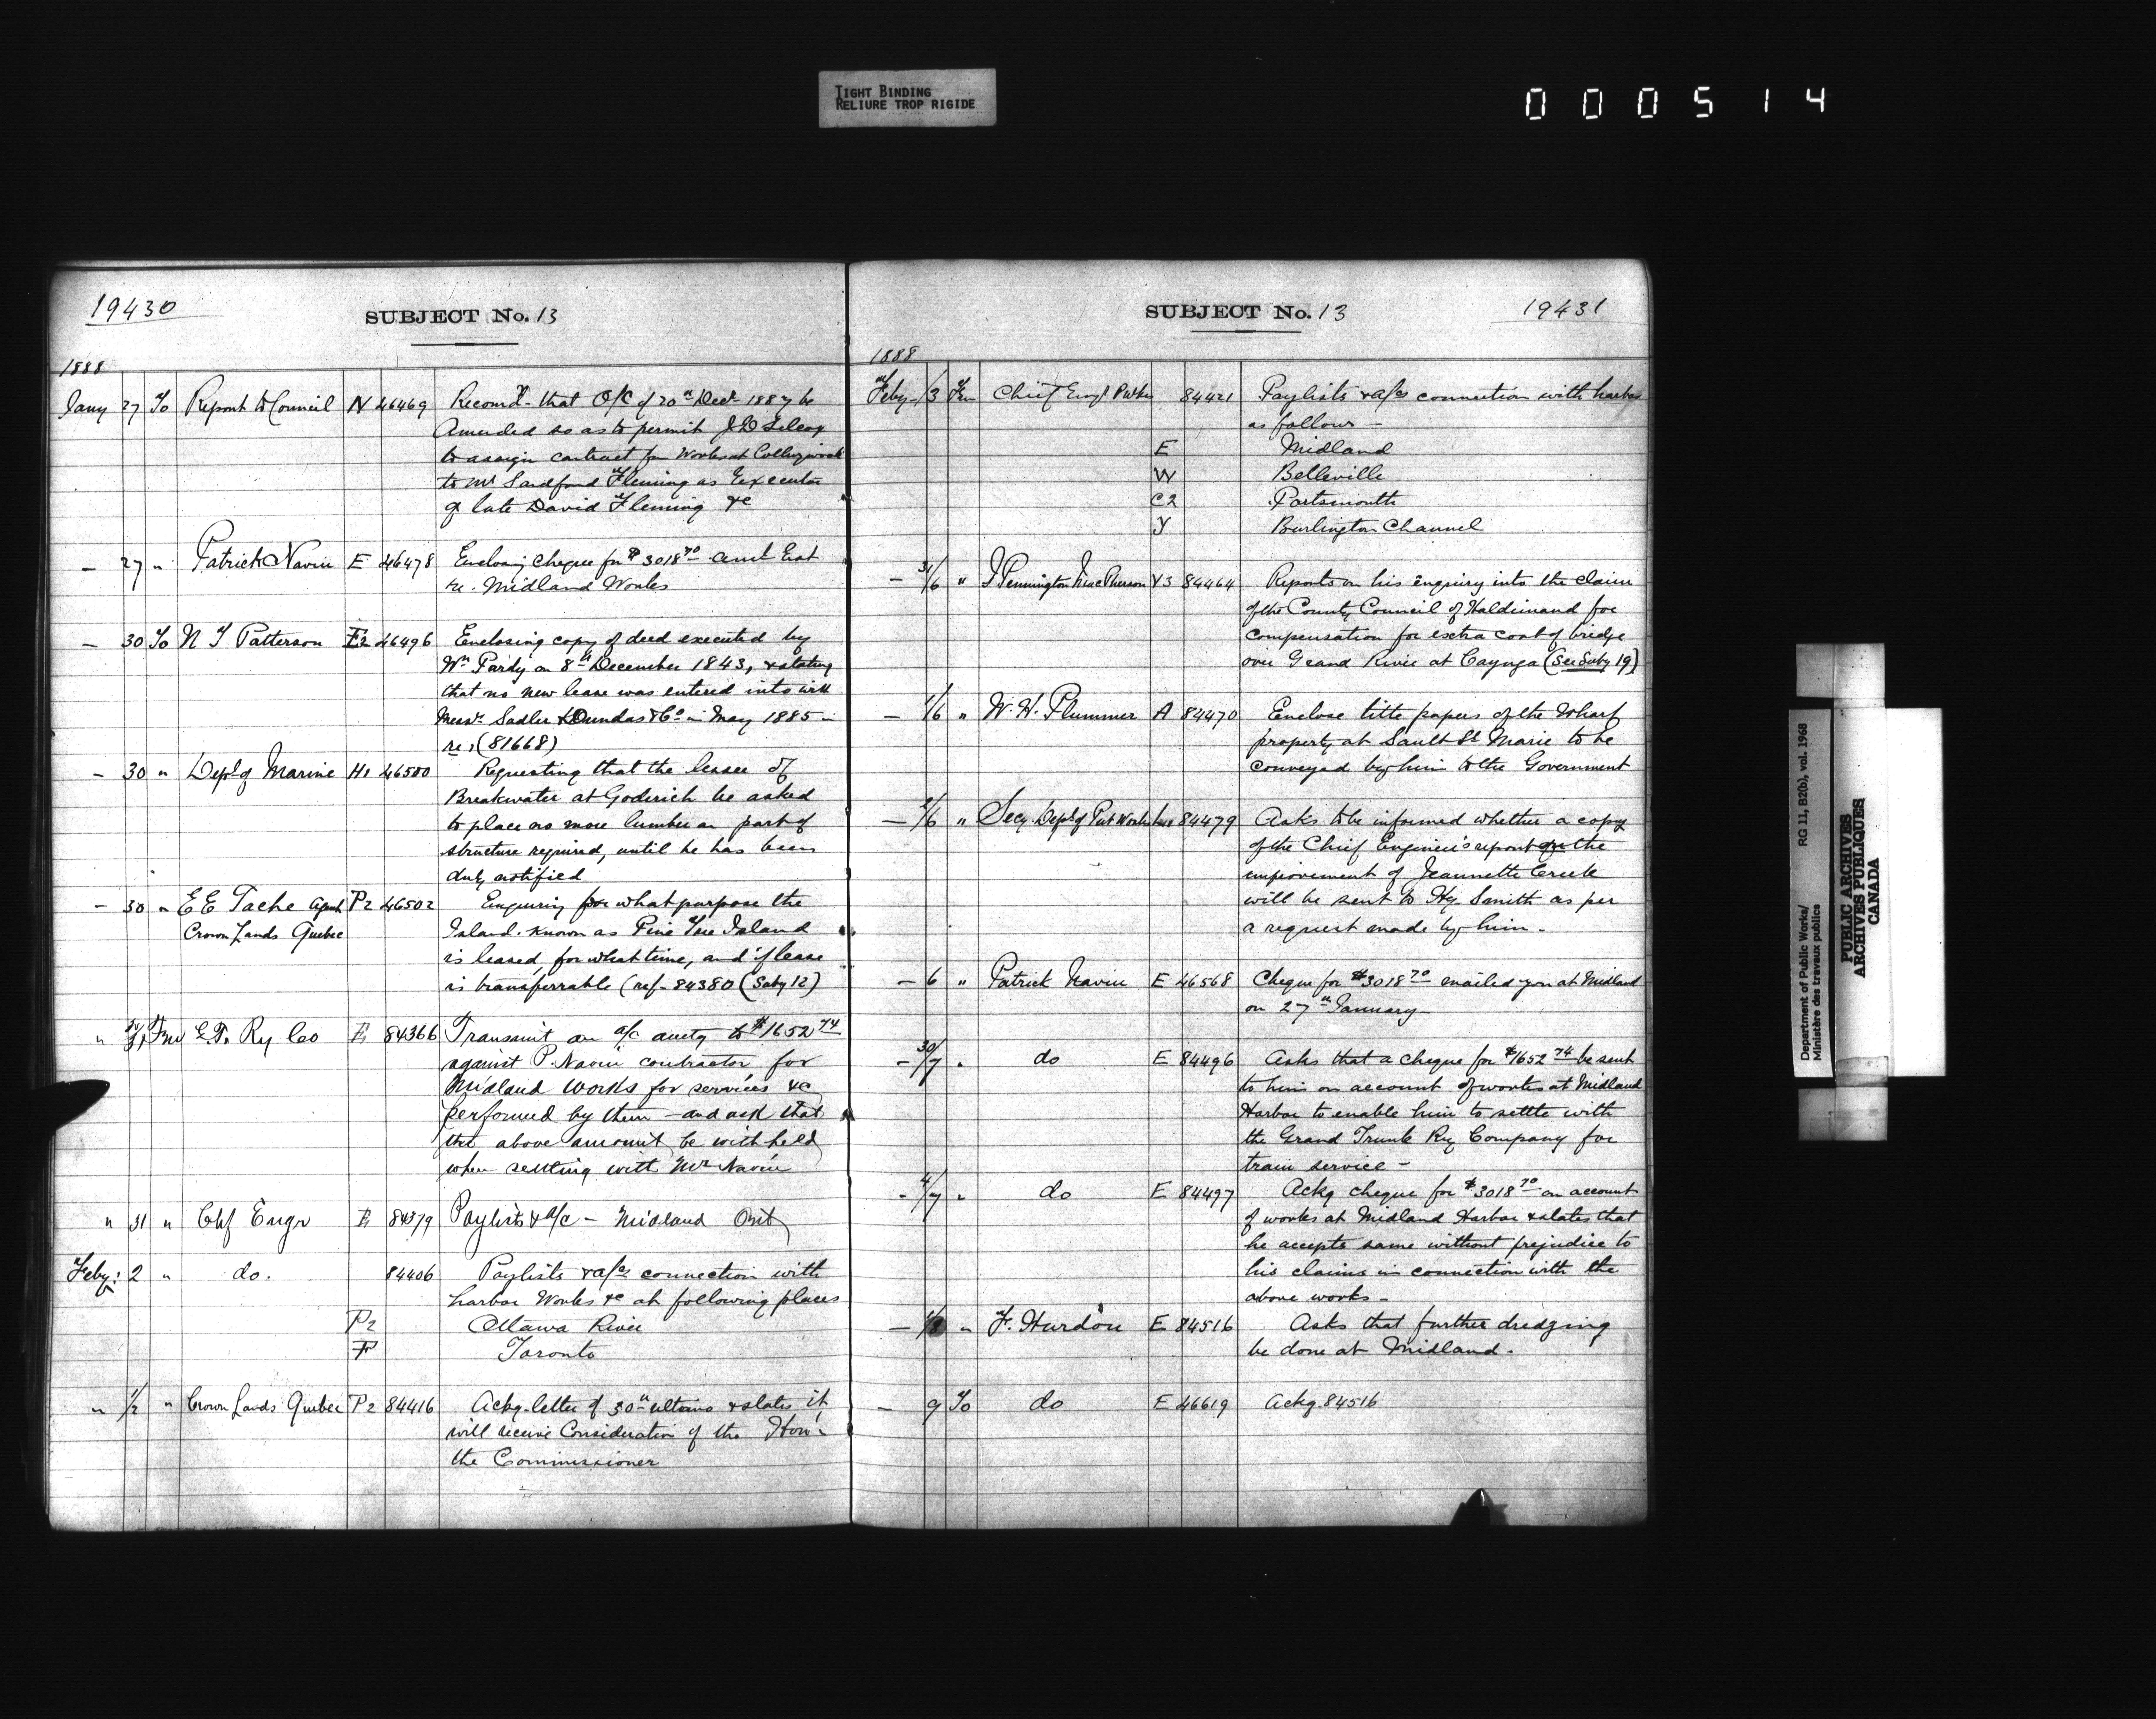 TIGHT BINDING
RELIURE TROP RIGIDE
000514
19430
SUBJECT No. 13
1888
Jany 27 To Report to Council N 46469 Recomd- that O/C of 20th Decr 1887 be
Amended so as to permit J D Silcox
to assign contract for Works at Collingwood
to Mr Sandford Fleming as Executor
of late David Fleming &c
— 27 " Patrick Navin E 46478 Enclosing cheque for $3018 70 amt Est
re. Midland Works
— 30 To N T Patterson E2 46496 Enclosing copy of deed executed by
Wm Pardy on 8th December 1843, & stating
that no new lease was entered into with
Messrs Sadler & Dundas & Co in May 1885 in
re, (81668)
— 30 " Dept of Marine H1 46500 Requesting that the lessee of
Breakwater at Goderich be asked
to place no more lumber on part of
structure required, until he has been
duly notified
— 30 " E E Tache Agent P2 46502 Enquiring for what purpose the
Crown Lands Quebec Island. known as Pine Tree Island
is leased, for what time, and if lease
is transferrable (ref- 84380 (Saby 12)
" 30/31 Fm G.T. Ry Co E 84366 Transmit an a/c amtg to $1652 74
against P. Navin contractor for
Midland Works for services &c
performed by them — and ask that
the above amount be withheld
when settling with Mr Navin
" 31 " Chf Engr E 84379 Paylists & a/c — Midland Ont
Feby: 2 " do. 84406 Paylists & a/cs connection with
harbor Works &c at following places
P2 Ottawa River
F Toronto
" 1/2 " Crown Lands Quebec P2 84416 Ackg. letter of 30th ultimo & states it
will receive Consideration of the Hon'
the Commissioner
SUBJECT No. 13
19431
1888
Feby 3 Fm Chief Engr P Wks 84421 Paylists & a/cs connection with harbor
as follows —
E Midland
W Belleville
C2 Portsmouth
Y Burlington Channel
— 31/6 " J Pennington MacPherson Y3 84464 Reports on his enquiry into the claim
of the County Council of Haldimand for
compensation for extra cost of bridge
over Grand River at Cayuga (See Suby 19)
— 1/6 " W. H. Plummer A 84470 Enclose title papers of the Wharf
property at Sault St Marie to be
conveyed by him to the Government
— 2/6 " Secy Dept of Pub Works 84479 Asks to be informed whether a copy
of the Chief Engineer's report on the
improvement of Jeannette Creek
will be sent to Hy. Smith as per
a request made by him.
— 6 " Patrick Navin E 46568 Cheque for $3018 70 mailed you at Midland
on 27th January
— 30/7 " do E 84496 Asks that a cheque for $1652 74 be sent
to him on account of works at Midland
Harbor to enable him to settle with
the Grand Trunk Ry Company for
train service —
- 4/7 " do E 84497 Ackg cheque for $3018 70 on account
of works at Midland Harbor & states that
he accepts same without prejudice to
his claims in connection with the
above works —
— 1/8 " F. Hurdon E 84516 Asks that further dredging
be done at Midland.
— 9 To do E 46619 Ackg. 84516
Department of Public Works/
Ministère des travaux publics
RG 11, B2(b), vol. 1968
PUBLIC ARCHIVES
ARCHIVES PUBLIQUES
CANADA